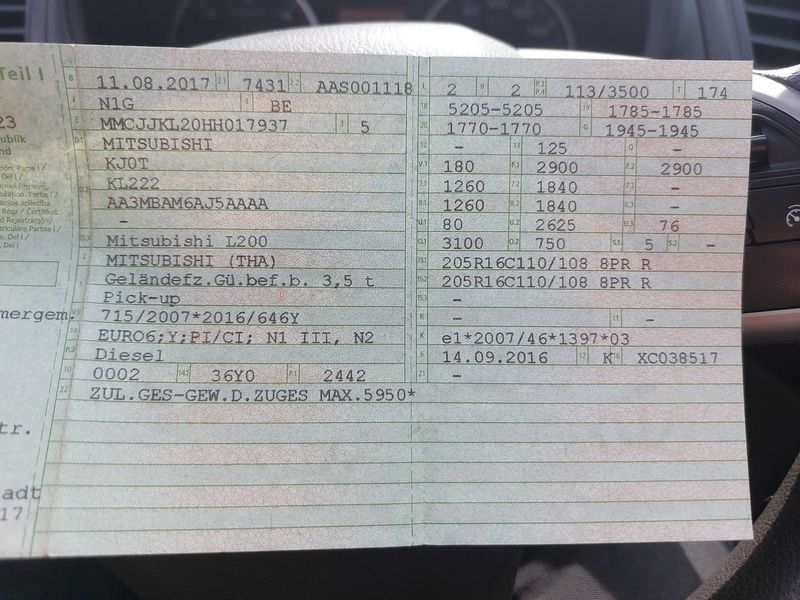 Teil I
B 11.08.2017 2.1 7431 2.2 AAS001118 L 2 9 2 P.2 P.4 113/3500 T 174
J N1G 4 BE 18 5205-5205 19 1785-1785
E MMCJJKL20HH017937 3 5 20 1770-1770 G 1945-1945
D.1 MITSUBISHI 12 - 13 125 Q -
KJ0T V.7 180 F.1 2900 F.2 2900
D.2 KL222 7.1 1260 7.2 1840 7.3 -
AA3MBAM6AJ5AAAA 8.1 1260 8.2 1840 8.3 -
- U.1 80 U.2 2625 U.3 76
D.3 Mitsubishi L200 O.1 3100 O.2 750 S.1 5 S.2 -
2 MITSUBISHI (THA) 15.1 205R16C110/108 8PR R
5 Geländefz.Gü.bef.b. 3,5 t 15.2 205R16C110/108 8PR R
Pick-up 15.3 -
V.9 715/2007*2016/646Y R - 11 -
14 EURO6;Y;PI/CI; N1 III, N2 K e1*2007/46*1397*03
P.3 Diesel 6 14.09.2016 17 K 16 XC038517
10 0002 14.1 36Y0 P.1 2442 21 -
22 ZUL.GES-GEW.D.ZUGES MAX.5950*
23
mergem.
tr.
adt
17